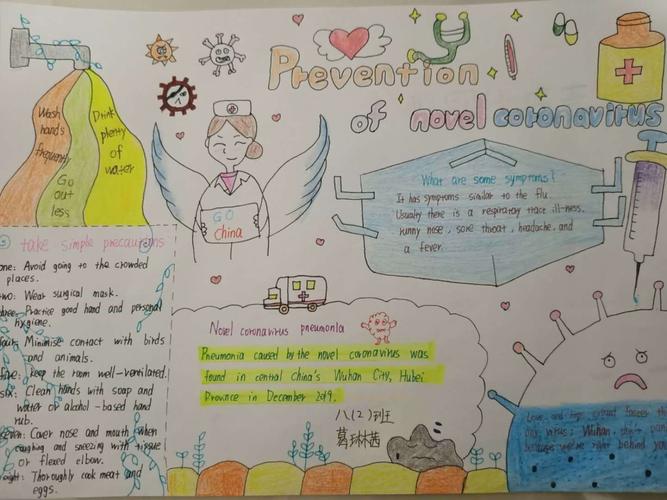 Prevention
of novel coronavirus
Wash
hands
frequently
Go
out
less
Drink
plenty
of
water
GO
China
What are some symptoms?
It has symptoms similar to the flu.
Usually there is a respiratory tract ill-ness.
runny nose, sore throat, headache, and
a fever.
take simple precautions
one: Avoid going to the crowded
places.
two: Wear surgical mask.
Practice good hand and personal
hygiene.
four: Minimise contact with birds
and animals.
five: keep the room well-ventilated.
six: Clean hands with soap and
water or alcohol-based hand
rub.
seven: Cover nose and mouth when
coughing and sneezing with tissue
or flexed elbow.
eight: Thoroughly cook meat and
eggs.
Novel coronavirus pneumonia
Pneumonia caused by the novel coronavirus was
found in central china's Wuhan City, Hubei
Province in December 2019.
八(2)班
葛琳茜
Love and
virus: Wuhan, don't
because we're right behind you